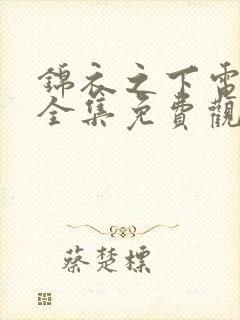 錦衣之下電
全集免費觀
蔡楚標